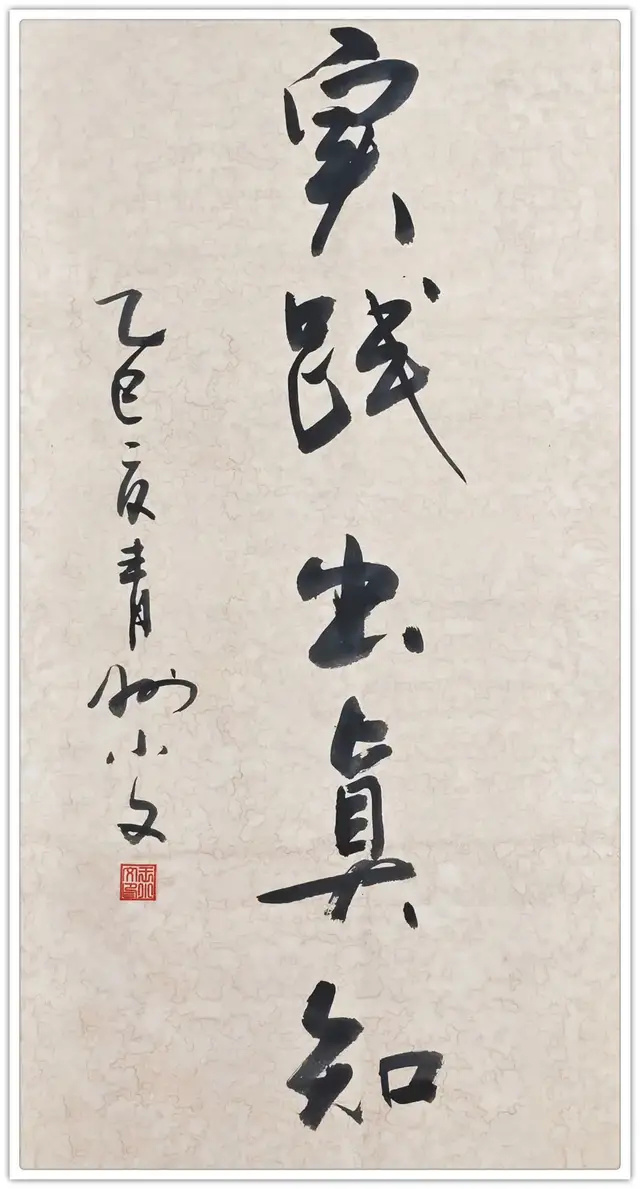 实践出真知
乙巳夏青州小文